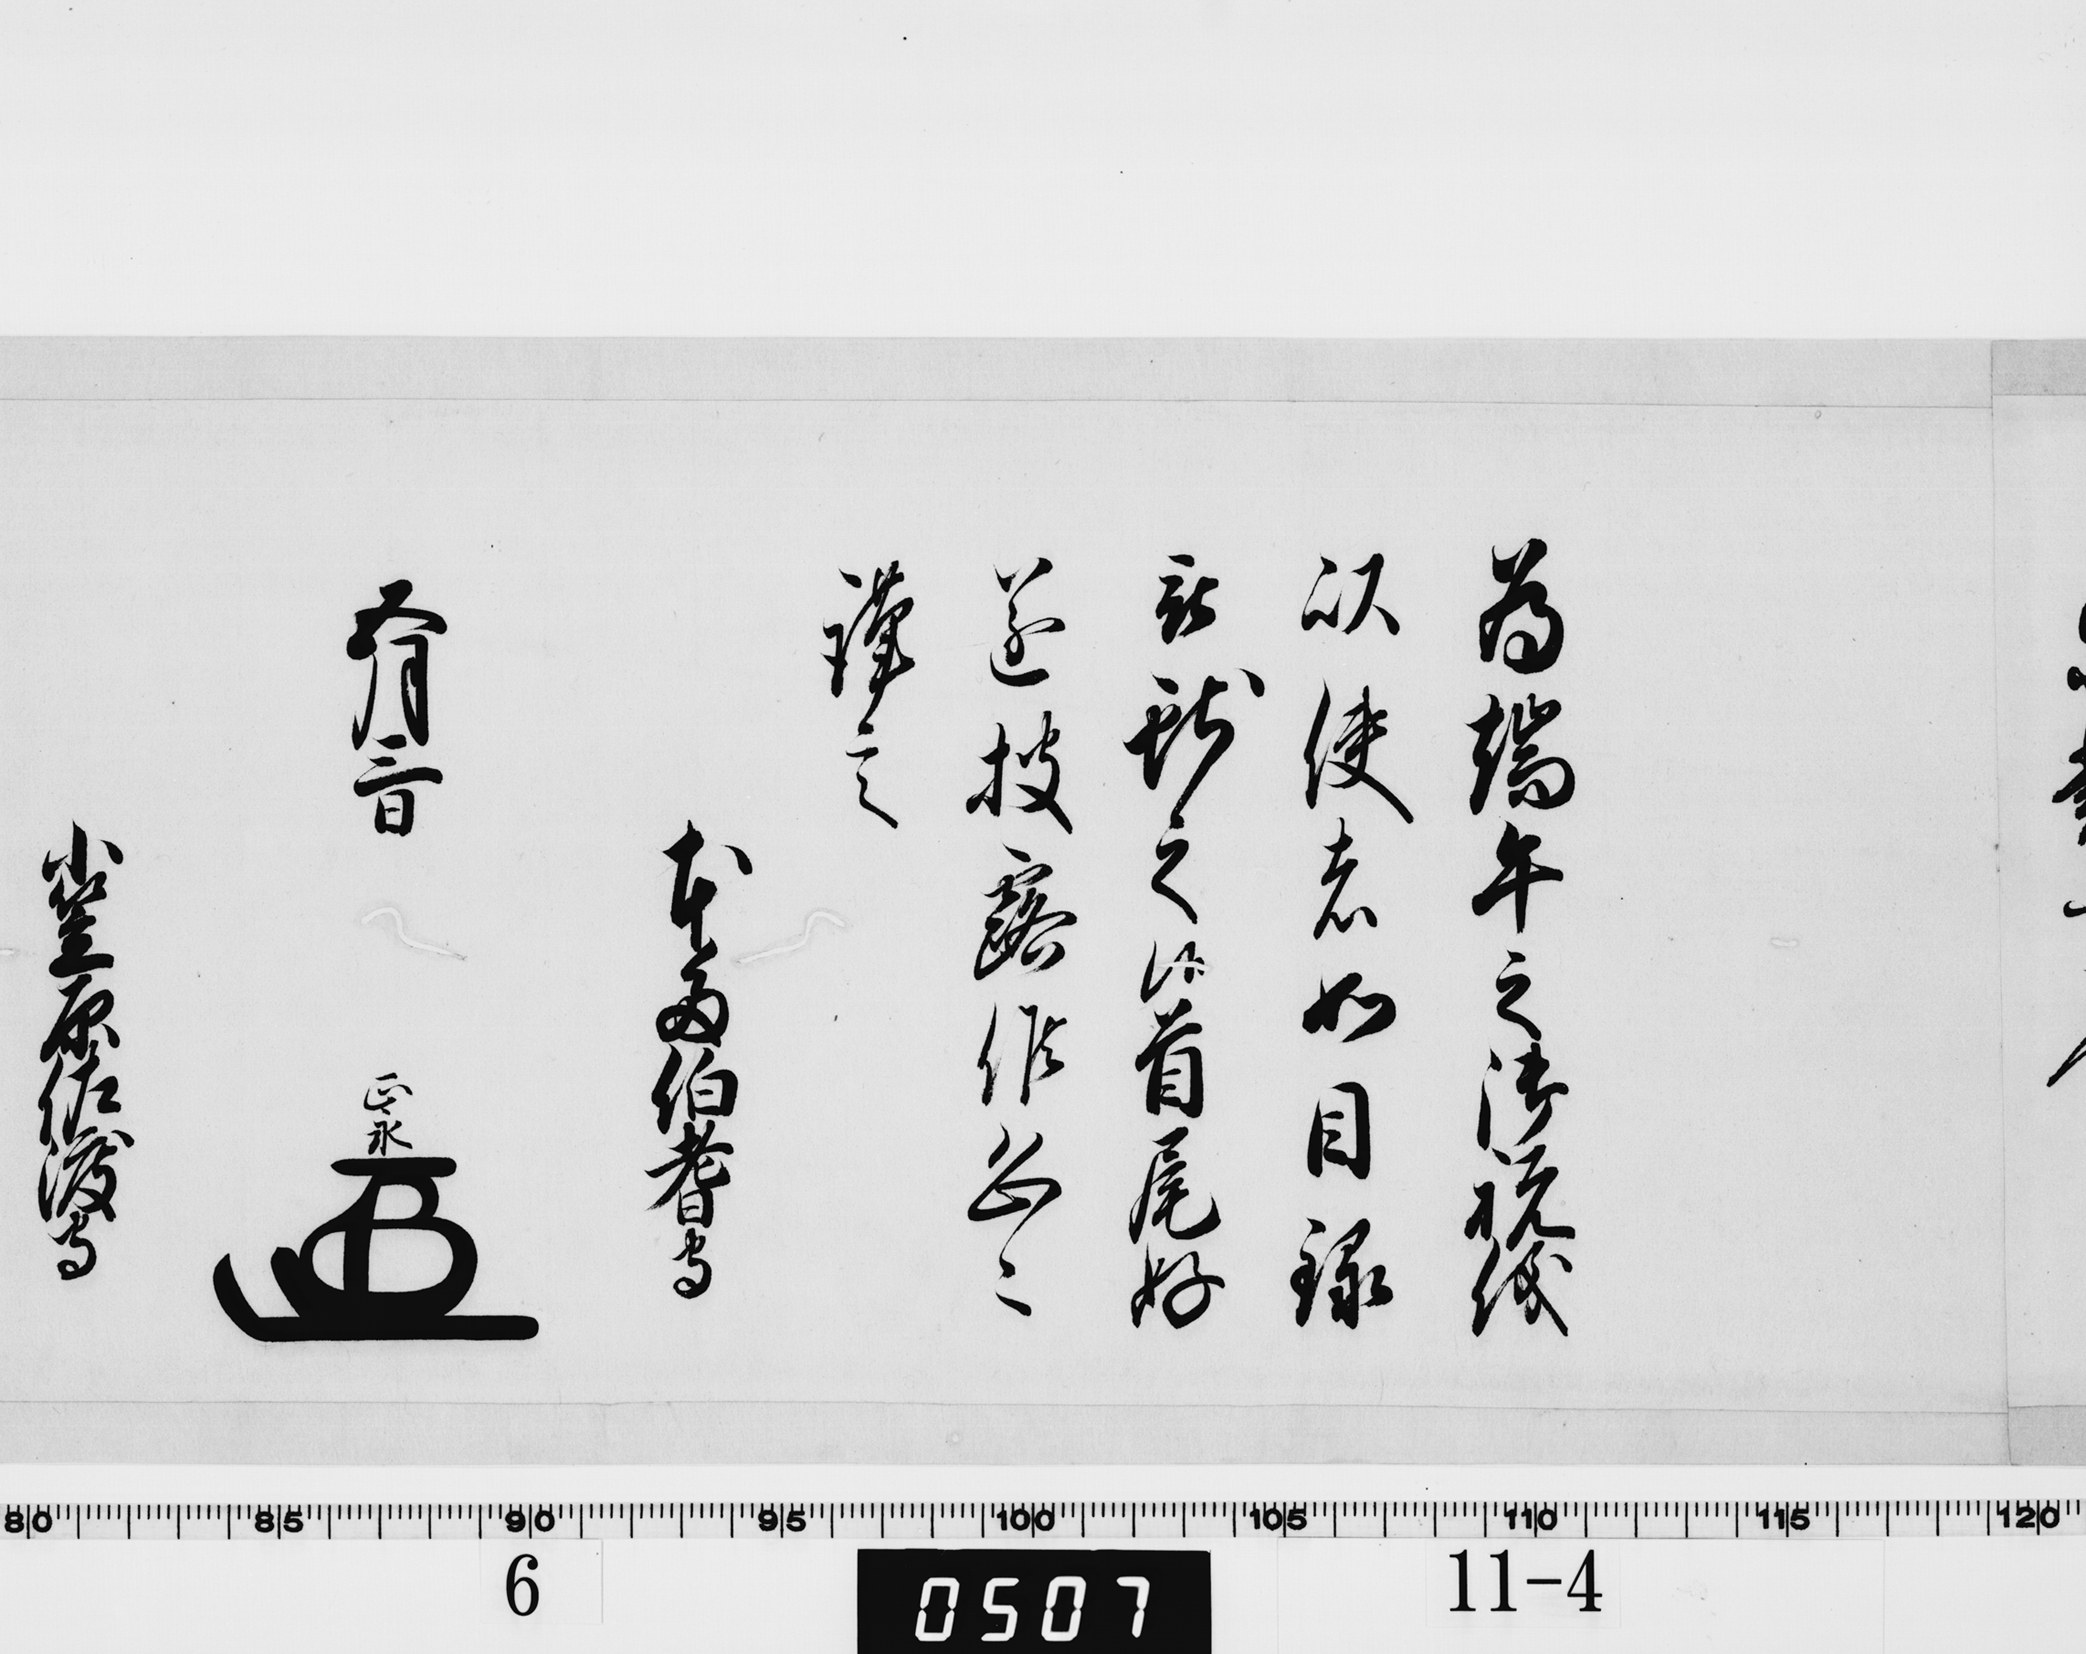 為端午之御祝儀
以使者如目録
被献之候首尾好
遂披露候恐々
謹言
本多伯耆守
五月三日
正永
小笠原佐渡守
80 85 90 95 100 105 110 115 120
6
0507
11-4